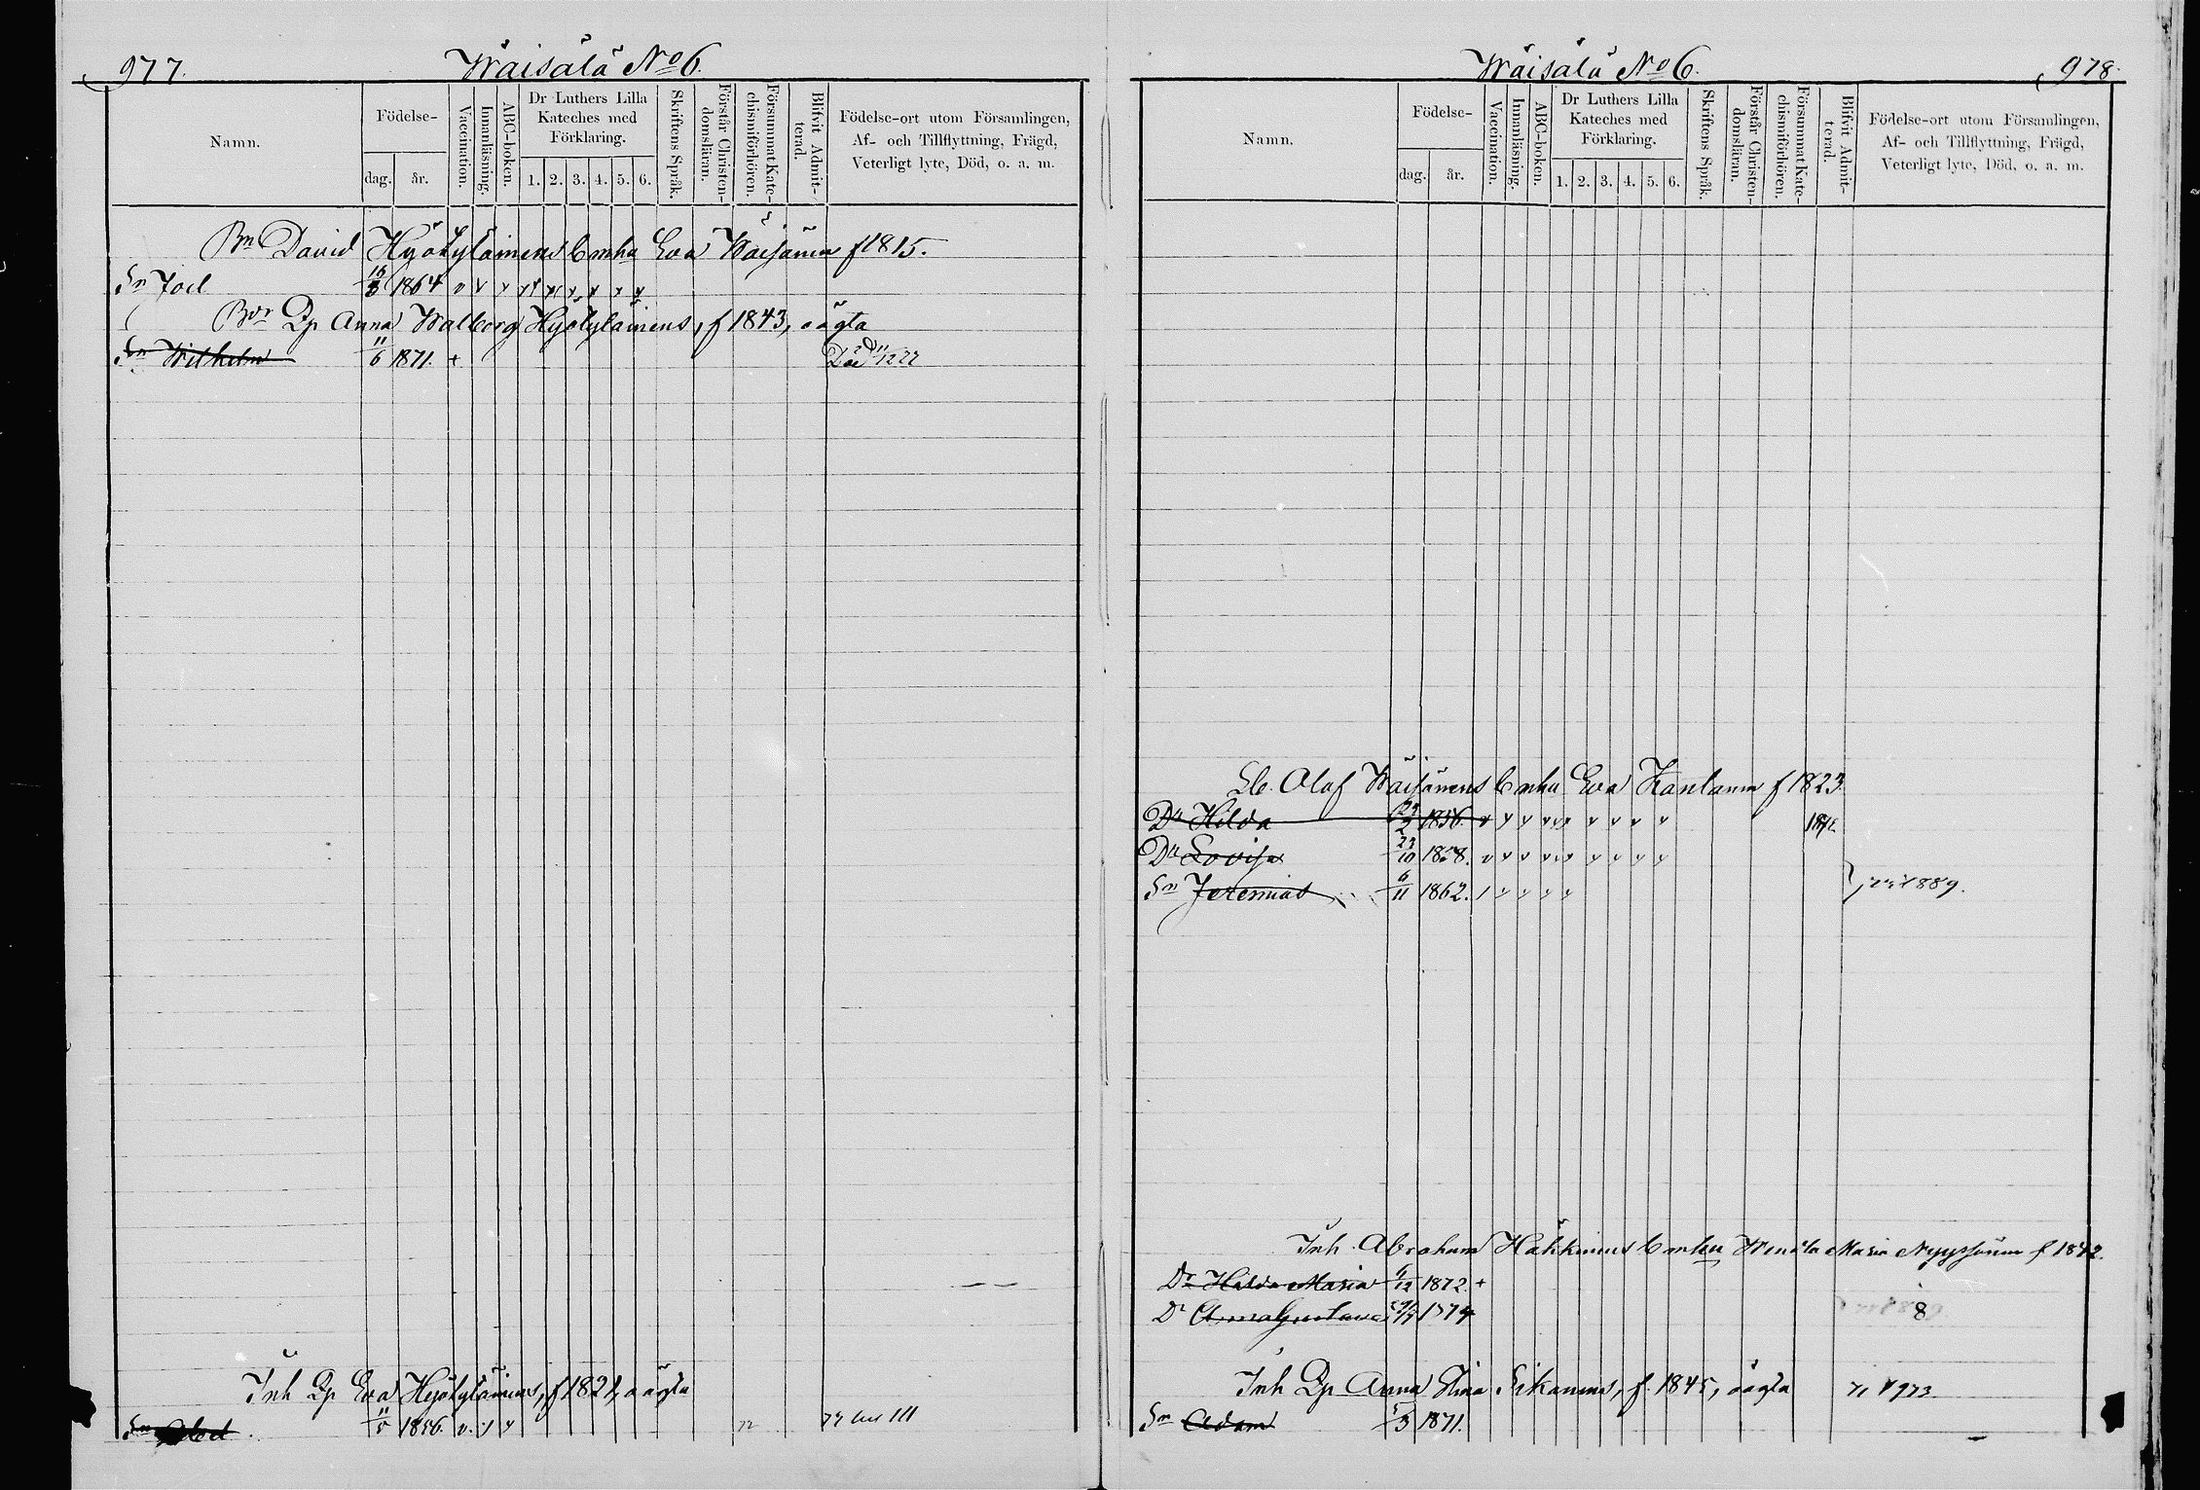 977.
Wäisälä No 6.
Namn.
Födelse-
dag.
år.
Vaccination.
Innanläsning.
ABC-boken.
Dr Luthers Lilla
Kateches med
Förklaring.
1. 2. 3. 4. 5. 6.
Skriftens Språk.
Förstår Christen-
domsläran.
Försummat Kate-
chismiförhören.
Blifvit Admit-
terad.
Födelse-ort utom Församlingen,
Af- och Tillflyttning, Frägd,
Veterligt lyte, Död, o. a. m.
Bn David Hyötyläinens Enka Eva Wäisänen f 1815.
Sn Joel 1864 v v v
Dp Anna Walborg Hyötyläinens, f 1843, oägta
Sn Wilhelm 11/6 1871. +
Inh Dp Eva Hyötyläinens, f 1821, oägta
Sn 11/5 1856. v
Wäisälä No 6.
978.
Namn.
Födelse-
dag.
år.
Vaccination.
Innanläsning.
ABC-boken.
Dr Luthers Lilla
Kateches med
Förklaring.
1. 2. 3. 4. 5. 6.
Skriftens Språk.
Förstår Christen-
domsläran.
Försummat Kate-
chismiförhören.
Blifvit Admit-
terad.
Födelse-ort utom Församlingen,
Af- och Tillflyttning, Frägd,
Veterligt lyte, Död, o. a. m.
Olof Wäisänens Enka Eva f 1823
Dr Hilda 1856.
Dr Lovisa 23/10 1858.
Sn Jeremias 6/11 1862. 889.
Inh. Abraham Häkkinens Maria Nyyssönen f 1842.
Dr Hilda Maria 1872. +
Dr Anna Gustava 1874
8
Inh Dp Anna Stina Sikanens, f. 1845, oägta 973
Sn Adam 1871.